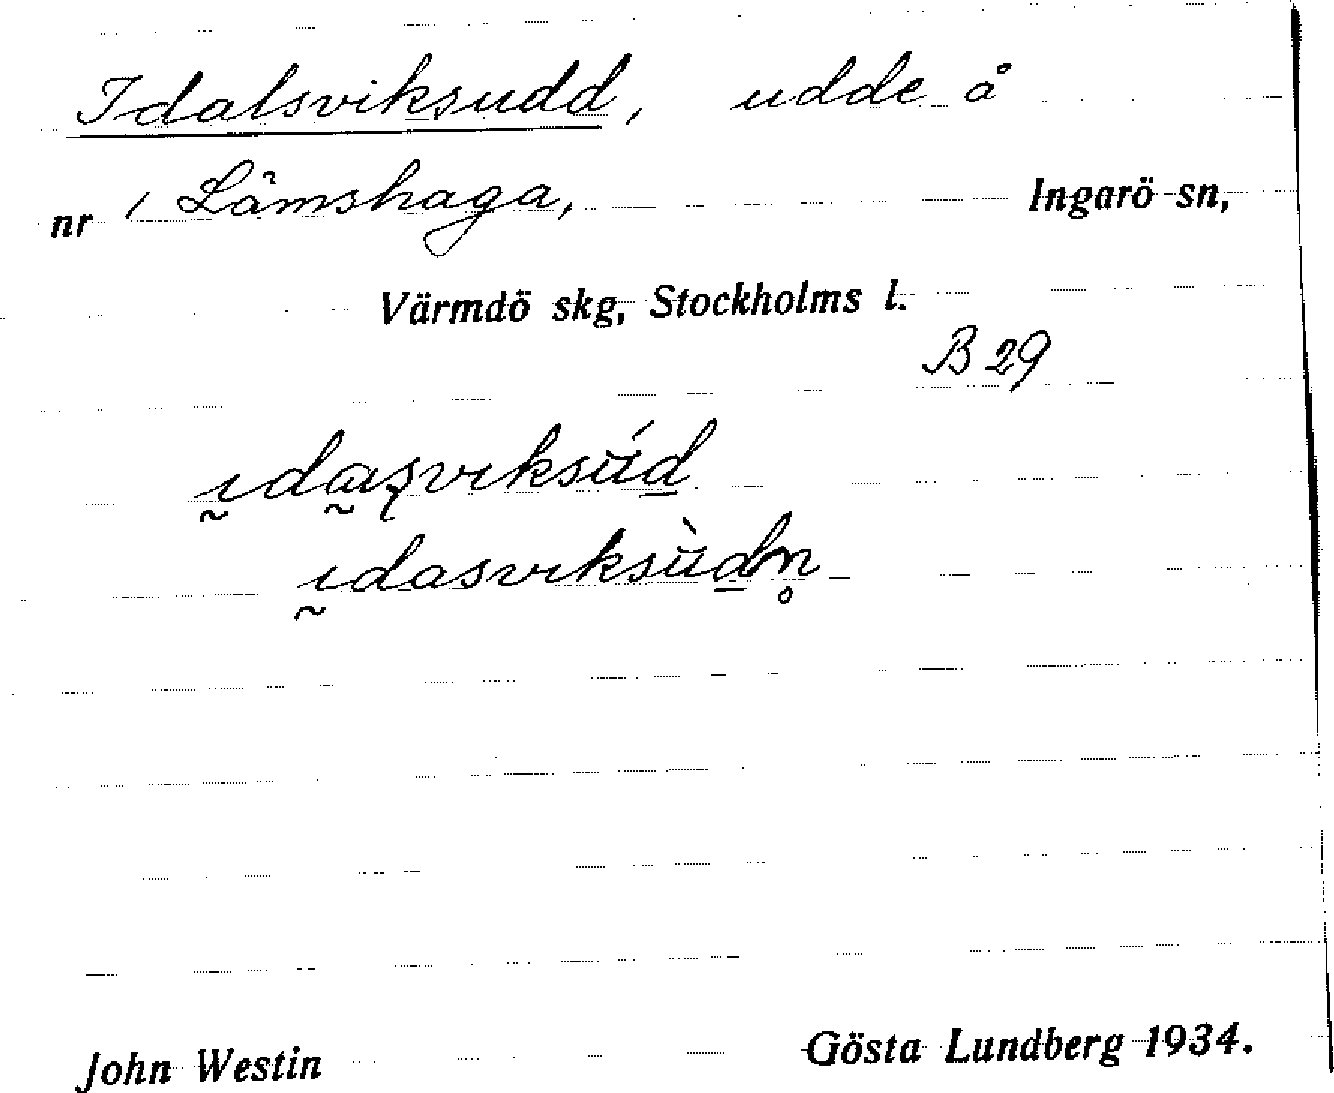 Idalsviksudd, udde å
nr 1 Lämshaga, Ingarö sn,
Värmdö skg, Stockholms l.
B 29
ıdasvıksúd
ıdasvıksùdn̥
John Westin Gösta Lundberg 1934.